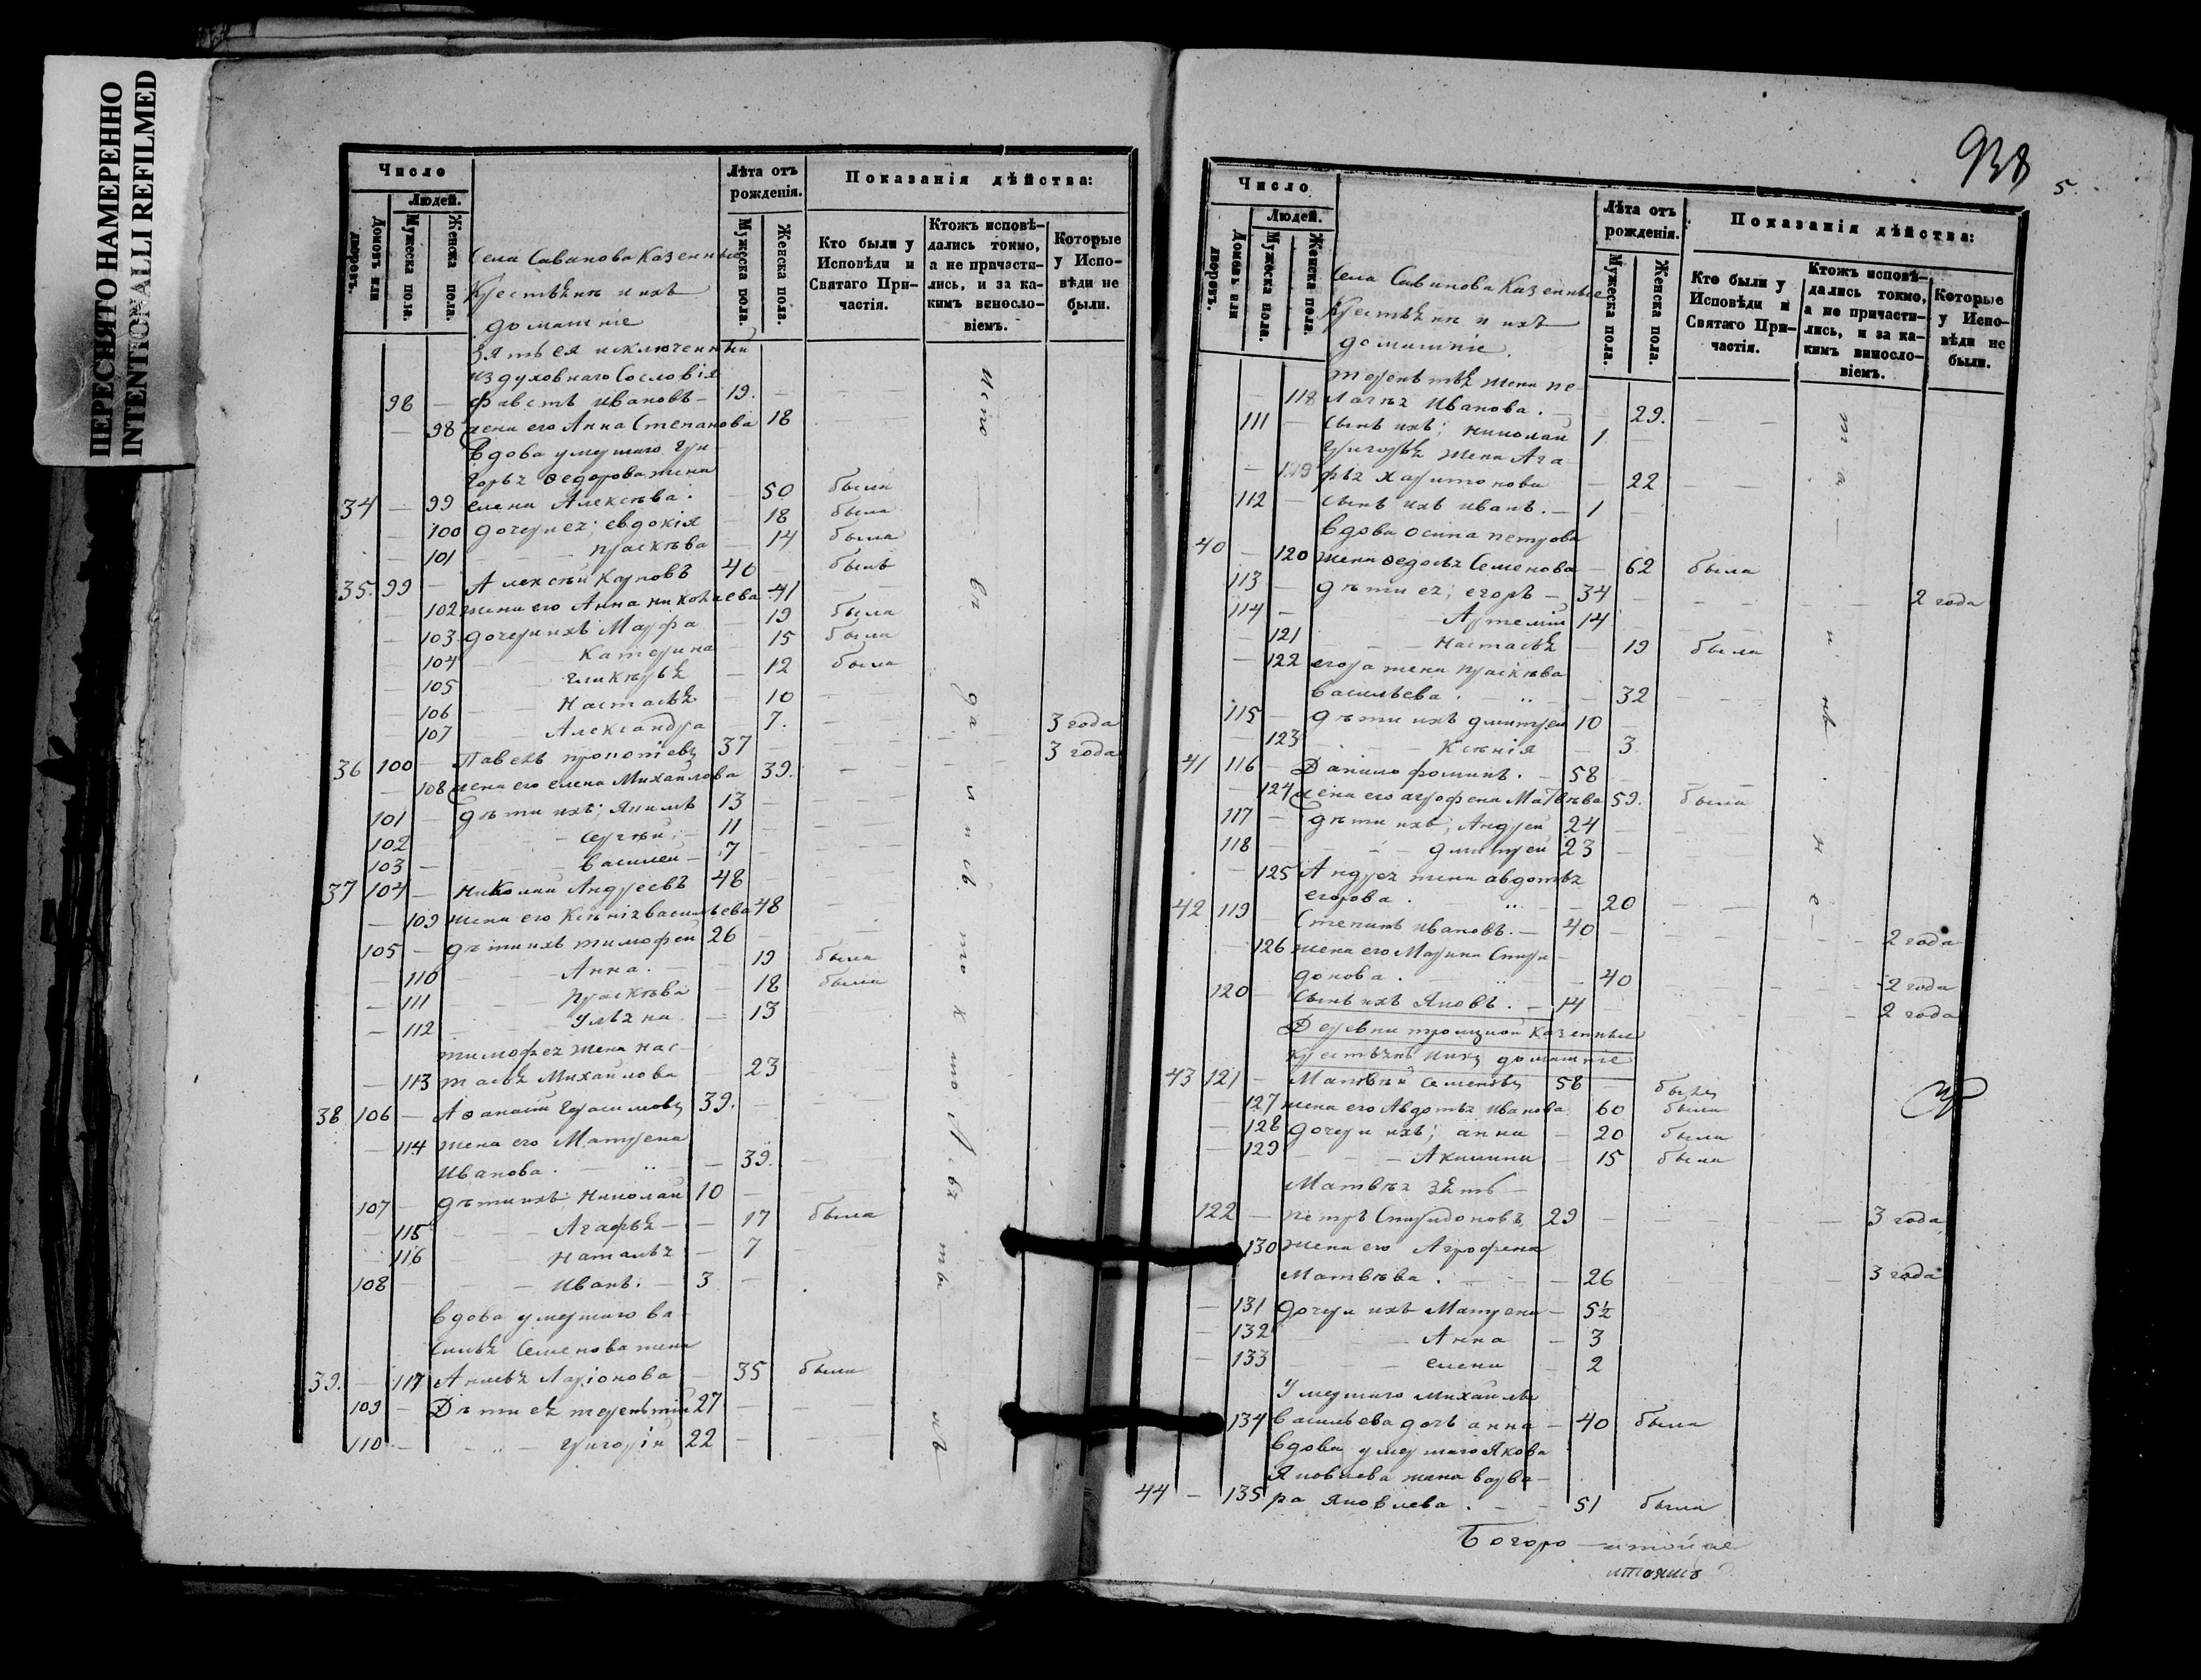 ПЕРЕСНЯТО НАМЕРЕННО
INTENTIONALLI REFILMED
Число
Людей.
Домовъ или дворовъ.
Мужеска пола.
Женска пола.
Села Савинова Казенные
Крестьяне и ихъ
домашніе
Лѣта отъ рожденія.
Мужеска пола.
Женска пола.
Показанія дѣйства:
Кто были у Исповѣди и Святаго Причастія.
Ктожъ исповѣдались токмо, а не причастились, и за какимъ винословіемъ.
Которые у Исповѣди не были.
Зять ея исключенный
изъ духовнаго Сословія
98 — Фавстъ Ивановъ — 19.
— 98 жена его Анна Степанова 18
Вдова умершаго Гри-
горья Ѳедорова жена
34 — 99 елена Алексѣева. — 50 была
— 100 дочери ея; евдокія — 18 была
— 101 — Прасковья — 14 была
35. 99 — Алексѣй Карповъ 40 — былъ
— 102 жена его Анна Николаева 41 —
— 103 дочери ихъ Марфа — 19 была
— 104 — Катерина — 15 была
— 105 — Гликерья — 12 была
— 106 — Настасья — 10 —
— 107 — Александра — 7. —
36 100 — Павелъ 37 — 3 года
— 108 жена его елена Михайлова 39. — 3 года
101 — дѣти ихъ; Якимъ 13 —
102 — Сергѣй — 11 —
103 — Василей — 7 —
37 104 — Николай Андреевъ 48 —
— 109 жена его Ксѣнія Васильева 48 —
105 — дѣти ихъ тимофей 26 —
— 110 — Анна. — 19 была
— 111 — Прасковья — 18 была
— 112 — Ульяна — 13
тимофея жена Нас-
— 113 тасья Михайлова — 23
38 106 — Аѳанасій Герасимовъ 39. —
— 114 жена его Матрена
Иванова. — 39.
107 — дѣти ихъ; Николай 10 —
— 115 — Агафья — 17 была
— 116 — Наталья — 7
108 — Иванъ. — 3 —
вдова умершаго Ва-
силья Семенова жена
39. — 117 Ларіонова — 35 была
109 — Дѣти ея терентій 27 —
110 — григорій 22 —
938
5.
Число
Людей.
Домовъ или дворовъ.
Мужеска пола.
Женска пола.
Села Савинова Казенные
Крестьяне и ихъ
домашніе.
Лѣта отъ рожденія.
Мужеска пола.
Женска пола.
Показанія дѣйства:
Кто были у Исповѣди и Святаго Причастія.
Ктожъ исповѣдались токмо, а не причастились, и за какимъ винословіемъ.
Которые у Исповѣди не были.
терентья жена пе-
— 118 лагея Иванова. — 29.
111 — сынъ ихъ; николай 1 —
григорья жена Ага-
— 119 фья Харитонова — 22
112 — сынъ ихъ иванъ. — 1 —
вдова осипа петрова
40 — 120 жена Ѳедосья Семенова — 62 была
113 — дѣти ея; егоръ — 34 — 2 года
114 — Артемій 14
— 121 — настасья — 19 была
— 122 егора жена прасковья
васильева. — 32
115 — дѣти ихъ дмитрей 10 —
— 123 — Ксѣнія — 3
41 116 — Данило фоминъ. — 58 —
— 124 жена его агрофена Матвѣева 59. была
117 — дѣти ихъ; Андрей 24 —
118 — дмитрей 23 —
— 125 Андрея жена авдотья
егорова. — 20
42 119 — Степанъ ивановъ. — 40 — 2 года
126 жена его Марина Спири-
донова. — 40 — 2 года
120 — сынъ ихъ Яковъ. — 14 — 2 года
Деревни троицкой Казенныи
крестьяне и ихъ домашніе
43 121 — Матвѣй семеновъ 58 — былъ
— 127 жена его Авдотья иванова 60 была
— 128 дочери ихъ; анна — 20 была
— 129 — Акилина — 15 была
Матвѣя зять —
122 — петръ Спиридоновъ 29 — 3 года
130 жена его Агрофена
Матвѣева. — 26 — 3 года
— 131 дочери ихъ Матрена — 5½
— 132 — Анна — 3
— 133 — елена — 2
Умершаго михайлы
134 васильева дочь анна — 40 была
вдова умершаго Якова
Яковлева жена варва-
44 — 135 ра яковлева. — 51 была